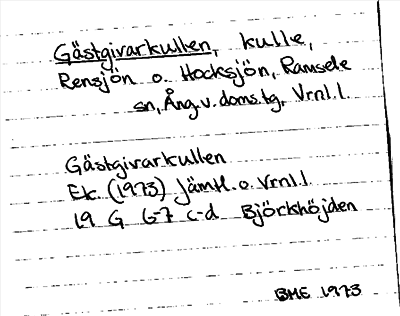 Gästgivarkullen, kulle,
Rensjön o. Hocksjön, Ramsele
sn, Ång.v.doms.tg, Vrnl.l.
Gästgivarkullen
Ek. (1973) Jämtl.o.Vrnl.l.
19 G 6-7 c-d Björkhöjden
BME 1973